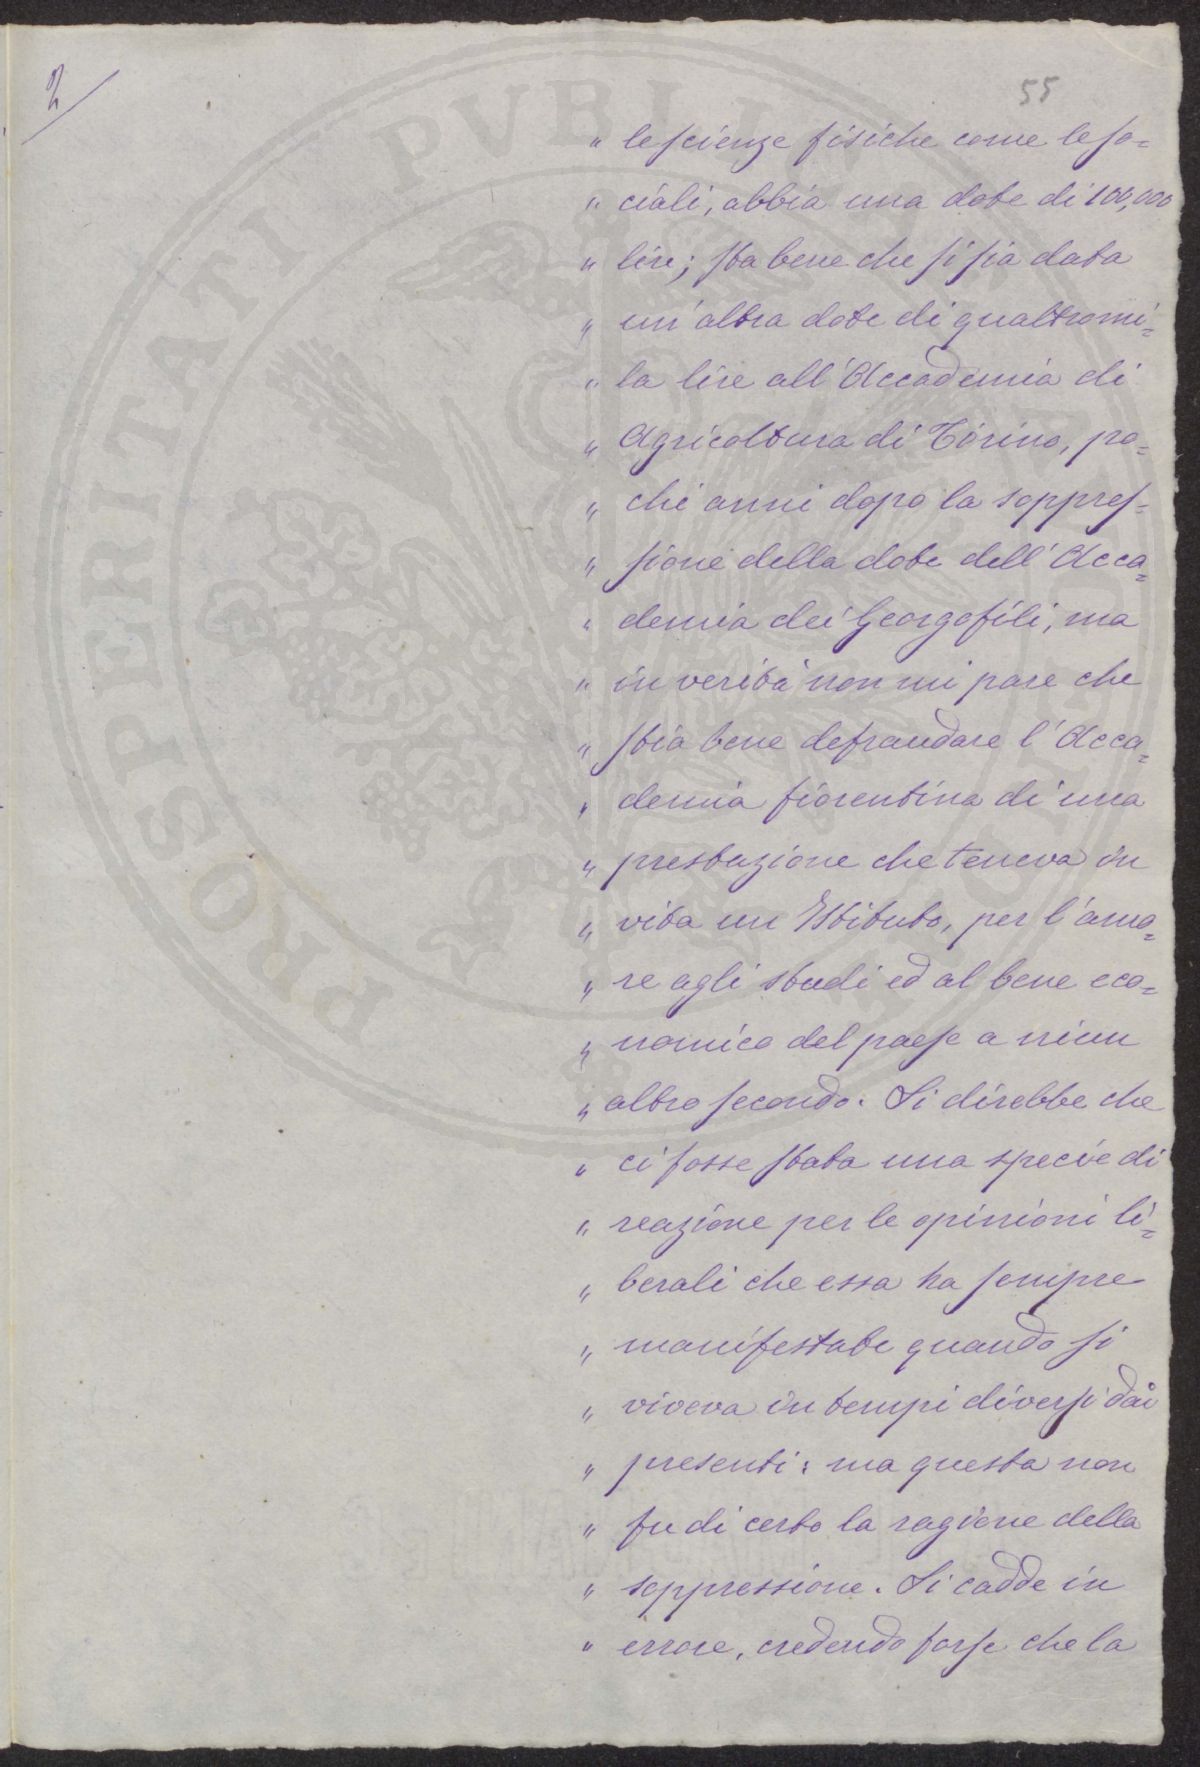 2
55
" le scienze fisiche come le so=
" ciali, abbia una dote di 100,000
" lire; sta bene che si sia data
" un'altra dote di quattromi=
" la lire all'Accademia di
" Agricoltura di Torino, po=
" chi anni dopo la soppres=
" sione della dote dell'Acca=
" demia dei Georgofili, ma
" in verità non mi pare che
" stia bene defraudare l'Acca=
" demia fiorentina di una
" prestazione che teneva in
" vita un Istituto, per l'amo=
" re agli studi ed al bene eco=
" nomico del paese a niun
" altro secondo. Si direbbe che
" ci fosse stata una specie di
" reazione per le opinioni li=
" berali che essa ha sempre
" manifestate quando si
" viveva in tempi diversi dai
" presenti: ma questa non
" fu di certo la ragione della
" soppressione. Si cadde in
" errore, credendo forse che la
PROSPERITATI PVBLI